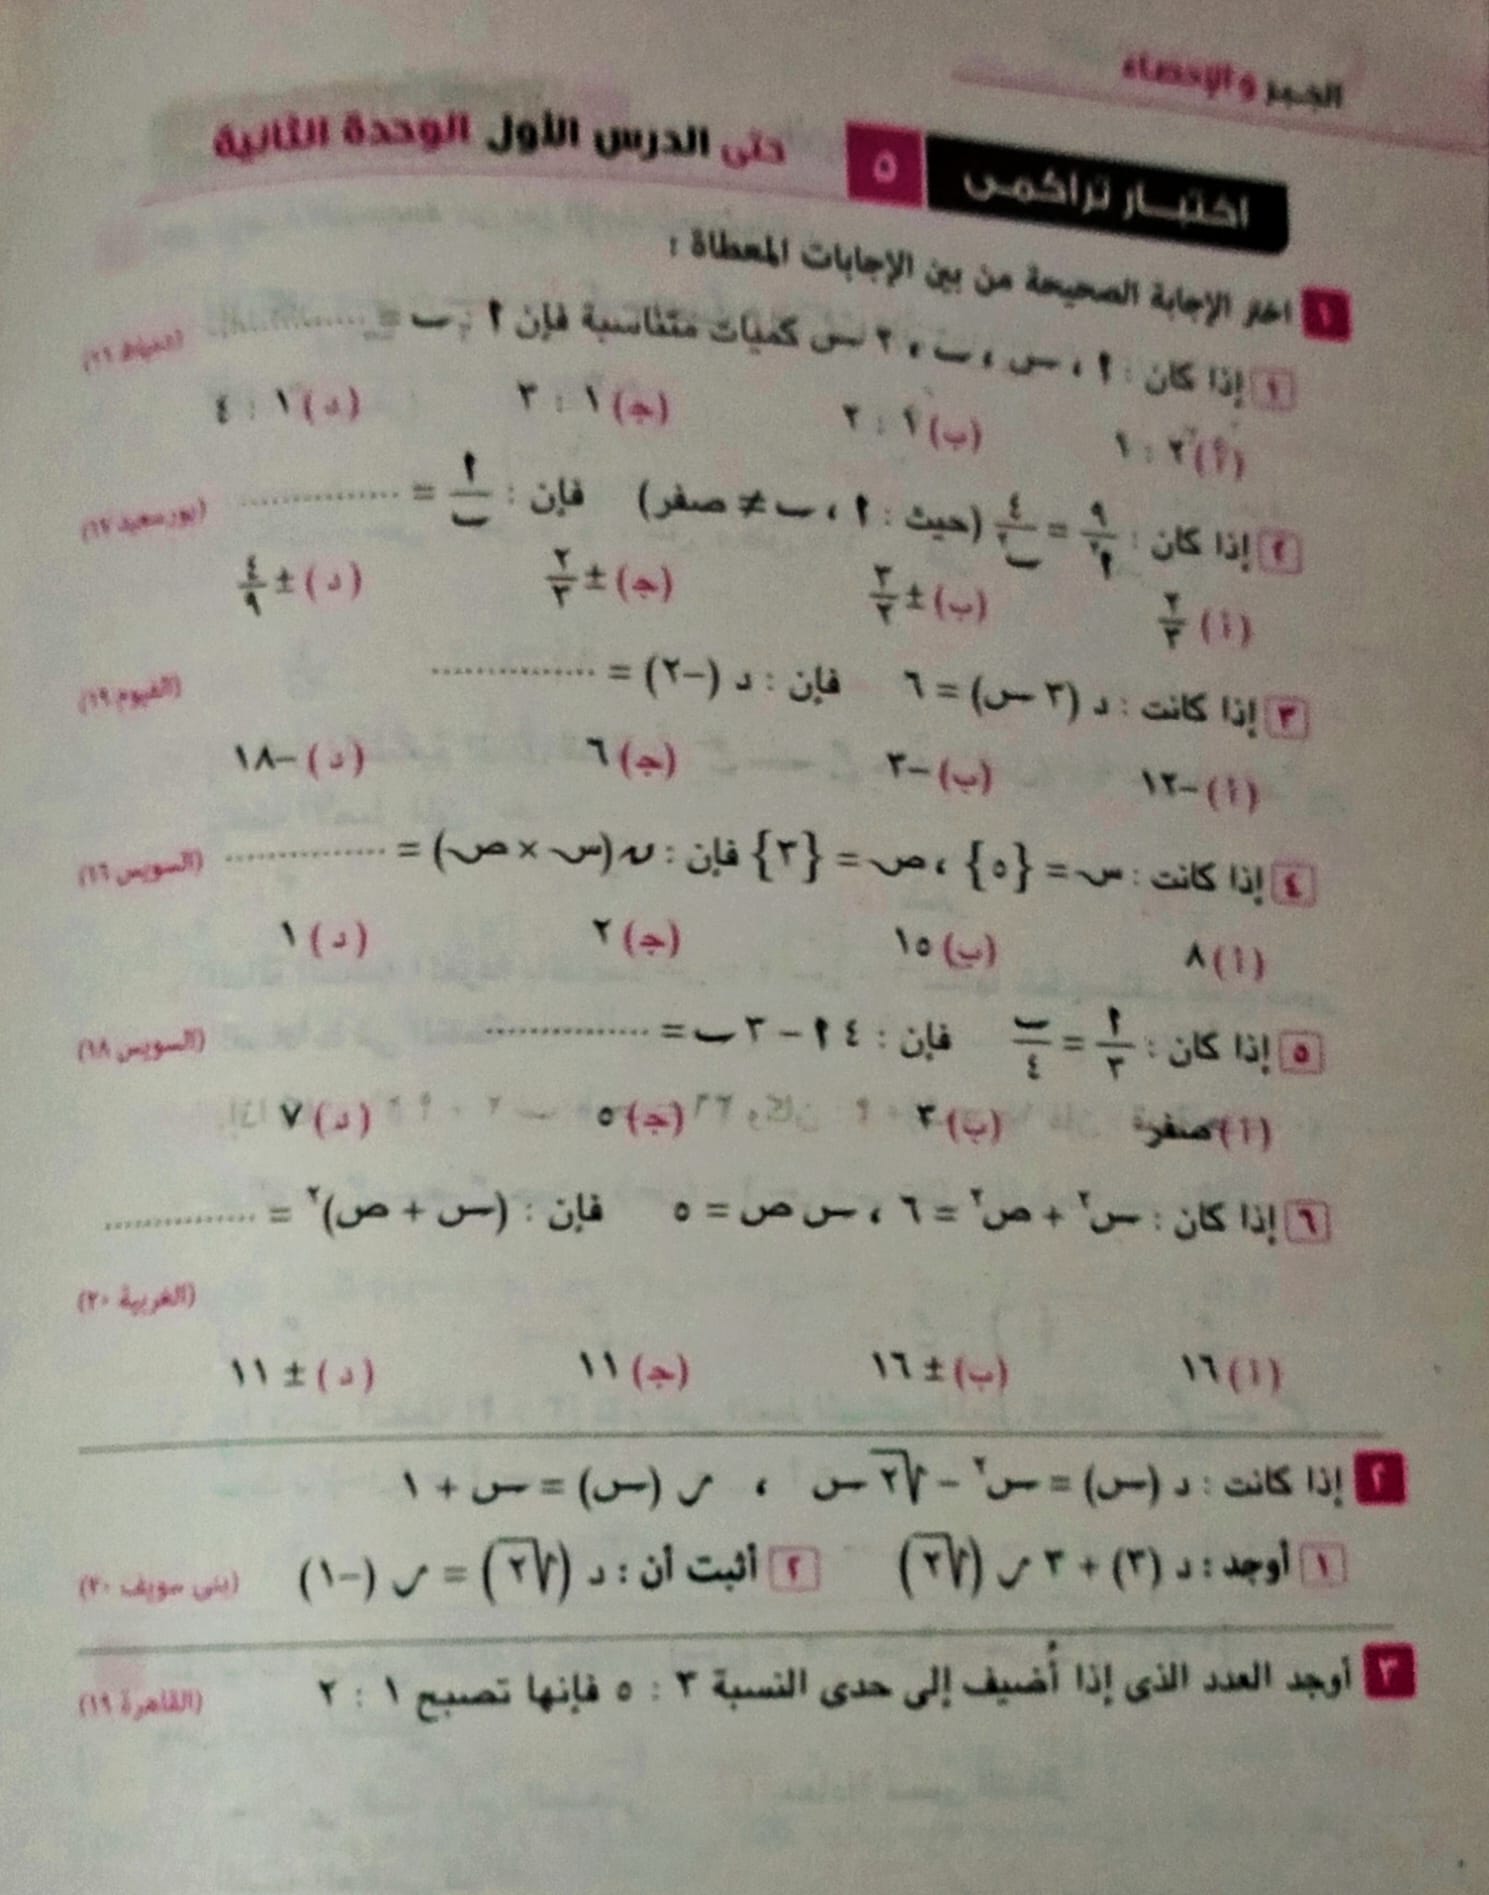 الجبر والإحصاء
اختبار تراكمى ٥ حتى الدرس الأول الوحدة الثانية
١ اختر الإجابة الصحيحة من بين الإجابات المعطاة :
١ إذا كان : ٢ ، س ، ب ، ٢ س كميات متناسبة فإن ٢ : ب = ............... (دمياط ١٦)
(أ) ٢ : ١ (ب) ١ : ٢ (جـ) ١ : ٣ (د) ١ : ٤
٢ إذا كان : ٩/٢^٢ = ٤/ب^٢ (حيث : ٢ ، ب ≠ صفر) فإن : ٢/ب = ............... (بورسعيد ١٧)
(أ) ٢/٣ (ب) ± ٣/٢ (جـ) ± ٢/٣ (د) ± ٤/٩
٣ إذا كانت : د (٣ س) = ٦ فإن : د (-٢) = ............... (الفيوم ١٩)
(أ) -١٢ (ب) -٣ (جـ) ٦ (د) -١٨
٤ إذا كانت : س = {٥} ، ص = {٣} فإن : ن (س × ص) = ............... (السويس ١٦)
(أ) ٨ (ب) ١٥ (جـ) ٢ (د) ١
٥ إذا كان : ٢/٣ = ب/٤ فإن : ٤ ٢ - ٣ ب = ............... (السويس ١٨)
(أ) صفر (ب) ٣ (جـ) ٥ (د) ٧
٦ إذا كان : س^٢ + ص^٢ = ٦ ، س ص = ٥ فإن : (س + ص)^٢ = ...............
(الغربية ٢٠)
(أ) ١٦ (ب) ± ١٦ (جـ) ١١ (د) ± ١١
٢ إذا كانت : د (س) = س^٢ - √٢ س ، س (س) = س + ١
١ أوجد : د (٣) + ٣ س (√٢) ٢ أثبت أن : د (√٢) = س (-١) (بنى سويف ٢٠)
٣ أوجد العدد الذى إذا أُضيف إلى حدى النسبة ٣ : ٥ فإنها تصبح ١ : ٢ (القاهرة ١٩)